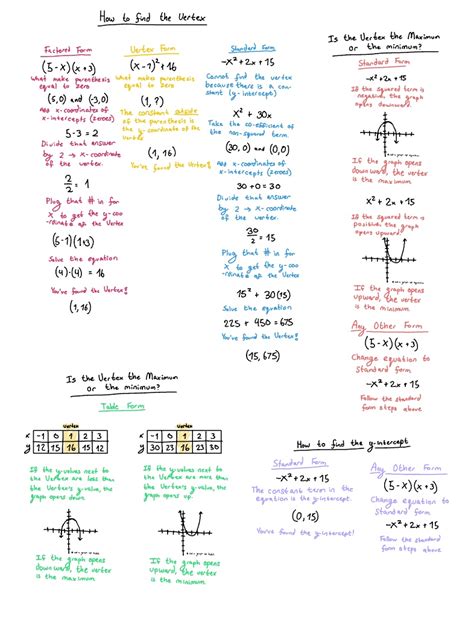 How to find the Vertex
Factored Form
(5-x)(x+3)
What makes parenthesis
equal to zero
(5,0) and (-3,0)
Add x-coordinates of
x-intercepts (zeroes)
5-3=2
Divide that answer
by 2 → x-coordinate
of the vertex
2/2 = 1
Plug that # in for
X to get the y-coo
-rdinate of the Vertex
(5-1)(1+3)
Solve the equation
(4)·(4) = 16
You've found the Vertex!
(1,16)
Vertex Form
(x-1)²+16
What makes parenthesis
equal to zero
(1, ?)
The constant outside
of the parenthesis is
the y-coordinate of the
vertex
(1,16)
You've found the Vertex!
Standard Form
-x²+2x+15
Cannot find the vertex
because there is a con-
stant (y-intercept)
X² + 30x
Take the co-efficient of
the non-squared term.
(30,0) and (0,0)
Add x-coordinates of
x-intercepts (zeroes)
30+0=30
Divide that answer
by 2 → x-coordinate
of the vertex
30/2 = 15
Plug that # in for
X to get the y-coo
-rdinate of the Vertex
15² + 30(15)
Solve the equation
225 + 450 = 675
You've found the Vertex!
(15,675)
Is the Vertex the Maximum
or the minimum?
Standard Form
-x²+2x+15
If the squared term is
negative, the graph
opens downward.
If the graph opens
downward, the vertex
is the maximum
x²+2x+15
If the squared term is
positive, the graph
opens upward
If the graph opens
upward, the vertex
is the minimum
Any Other Form
(5-x)(x+3)
Change equation to
standard form
-x²+2x+15
Follow the standard
form steps above
Is the Vertex the Maximum
or the minimum?
Table Form
vertex
x -1 0 1 2 3
y 12 15 16 15 12
If the y-values next to
the Vertex are less than
the Vertex's y-value, the
graph opens down.
If the graph opens
downward, the vertex
is the maximum
vertex
x -1 0 1 2 3
y 30 23 16 23 30
If the y-values next to
the Vertex are more than
the Vertex's y-value, the
graph opens up.
If the graph opens
upward, the vertex
is the minimum
How to find the y-intercept
Standard Form
-x²+2x+15
The constant term in the
equation is the y-intercept.
(0,15)
You've found the y-intercept!
Any Other Form
(5-x)(x+3)
Change equation to
Standard form
-x²+2x+15
Follow the standard
form steps above